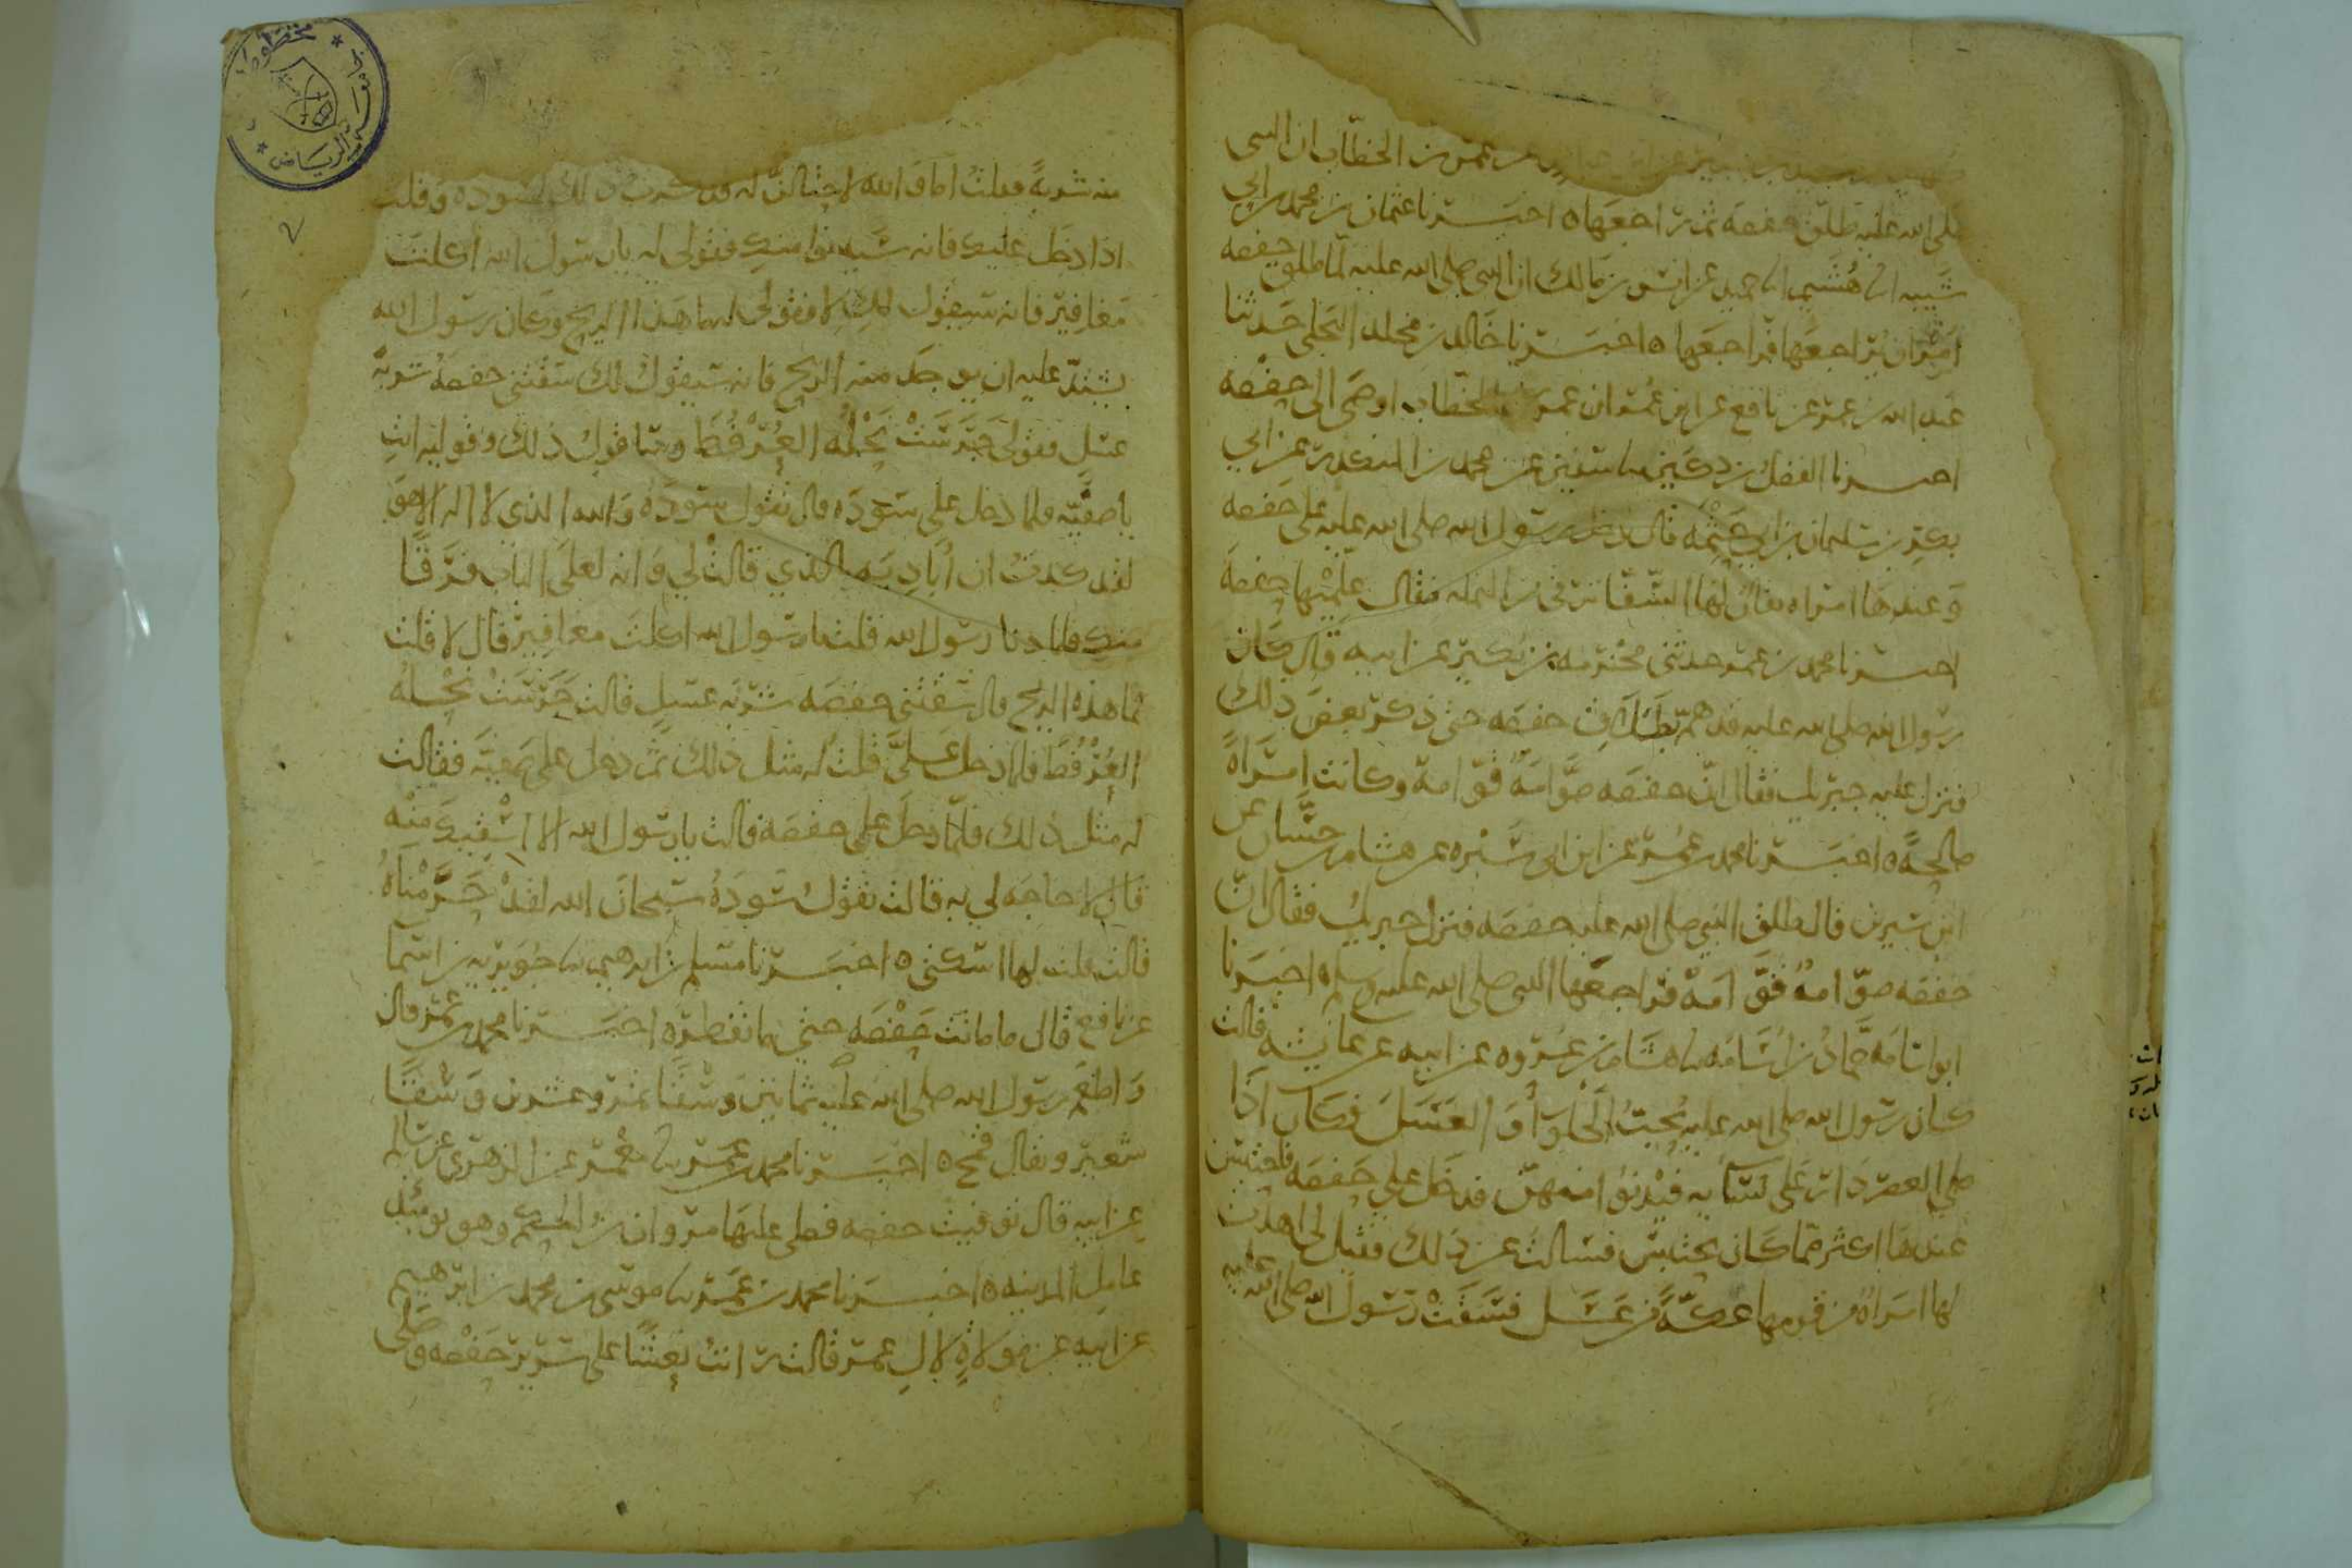 عمر بن الخطاب ان النبي
صلى الله عليه طلق حفصه ثم راجعها ه اخبرنا عثمان بن محمد بن ابي
شيبه انا هشيم انا حميد عن انس بن مالك ان النبي صلى الله عليه لما طلق حفصه
امر ان يراجعها فراجعها ه اخبرنا خالد بن مخلد البجلي حدثنا
عبد الله بن عمر عن نافع عن ابن عمر ان عمر بن الخطاب اوصى الى حفصه
اخبرنا الفضل بن دكين نا سفين عن محمد بن المنكدر عن ابي
بكر بن سليمان بن ابي حثمه قال دخل رسول الله صلى الله عليه على حفصه
وعندها امراه يقال لها الشفا ترقي من النمله فقال علميها حفصه
اخبرنا محمد بن عمر حدثني مخرمه بن بكير عن ابيه قال كان
رسول الله صلى الله عليه قد هم بطلاق حفصه حتى ذكر بعض ذلك
فنزل عليه جبريل فقال ان حفصه صوامه قوامة وكانت امراة
صالحة ه اخبرنا محمد بن عمر عن ابن ابي سبره عن هشام بن حسان عن
ابن سيرين قال طلق النبي صلى الله عليه حفصه فنزل جبريل فقال ان
حفصه صوامة قوامة فراجعها النبي صلى الله عليه وسلم ه اخبرنا
ابو اسامه حماد بن اسامه نا هشام بن عروه عن ابيه عن عائشه قالت
كان رسول الله صلى الله عليه يحب الحلوا و العسل فكان اذا
صلى العصر دار على نسايه فيدنوا منهن فدخل على حفصه فاحتبس
عندها اكثر مما كان يحتبس فسالت عن ذلك فقيل لي اهدت
لها امراة من قومها عكة من عسل فسقت رسول الله صلى الله عليه
منه شربة فقلت اما والله لاحتالن له فذكرت ذلك لسوده وقلت
اذا دخل عليك فانه سيدنوا منك فقولي له يا رسول الله اكلت
مغافير فانه سيقول لك لا فقولي له ما هذا الريح وكان رسول الله
يشتد عليه ان يوجد منه الريح فانه سيقول لك سقتني حفصة شربة
عسل فقولي جرست نحله العرفط وسا قول ذلك وقوليه انت
يا صفيه فلما دخل على سوده قال تقول سودة والله الذي لا اله الا هو
لقد كدت ان اباديه بالذي قالت لي وانه لعلى الباب فرقا
منك فلما دنا رسول الله قلت يا رسول الله اكلت مغافير قال لا قلت
فما هذه الريح قال سقتني حفصه شربه عسل قالت جرست نحله
العرفط فلما دخل علي قلت له مثل ذلك ثم دخل على صفيه فقالت
له مثل ذلك فلما دخل على حفصه قالت يا رسول الله الا اسقيك منه
قال لا حاجه لي به قالت تقول سوده سبحان الله لقد حرمناه
قالت قلت لها اسكتي ه اخبرنا مسلم بن ابرهيم نا جويريه بن اسما
عن نافع قال ما ماتت حفصه حتى ما تفطر ه اخبرنا محمد بن عمر قال
واطعم رسول الله صلى الله عليه حفصه ثمانين وسقا تمر وعشرين وسقا
شعير ويقال قمح ه اخبرنا محمد بن عمر نا معمر عن الزهري عن سالم
عن ابيه قال توفيت حفصه فصلى عليها مروان بن الحكم وهو يوميذ
عامل المدينه ه اخبرنا محمد بن عمر نا موسى بن محمد بن ابرهيم
عن ابيه عن مولاة لال عمر قالت رايت نعشا على سرير حفصه وصلى